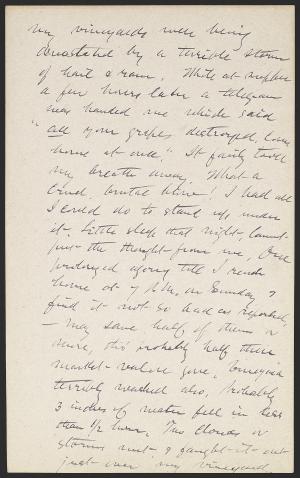 my vineyards were being
devastated by a terrible storm
of hail & rain. While at supper
a few hours later a telegram
was handed me which said
"all your grapes destroyed, come
home at once." It fairly took
my breath away. What a
cruel, brutal blow! I had all
I could do to stand up under
it. Little sleep that night, cannot
put the thought from me,
prolonged agony till I reach
home at 7 P.M. on Sunday &
find it not so bad as reported,
— may save half of them or
more, tho' probably half their
market-value gone, vineyard
terribly washed also. Probably
3 inches of water fell in less
than 1/2 hour. Two clouds or
storms met & fought it out
just over my vineyard.